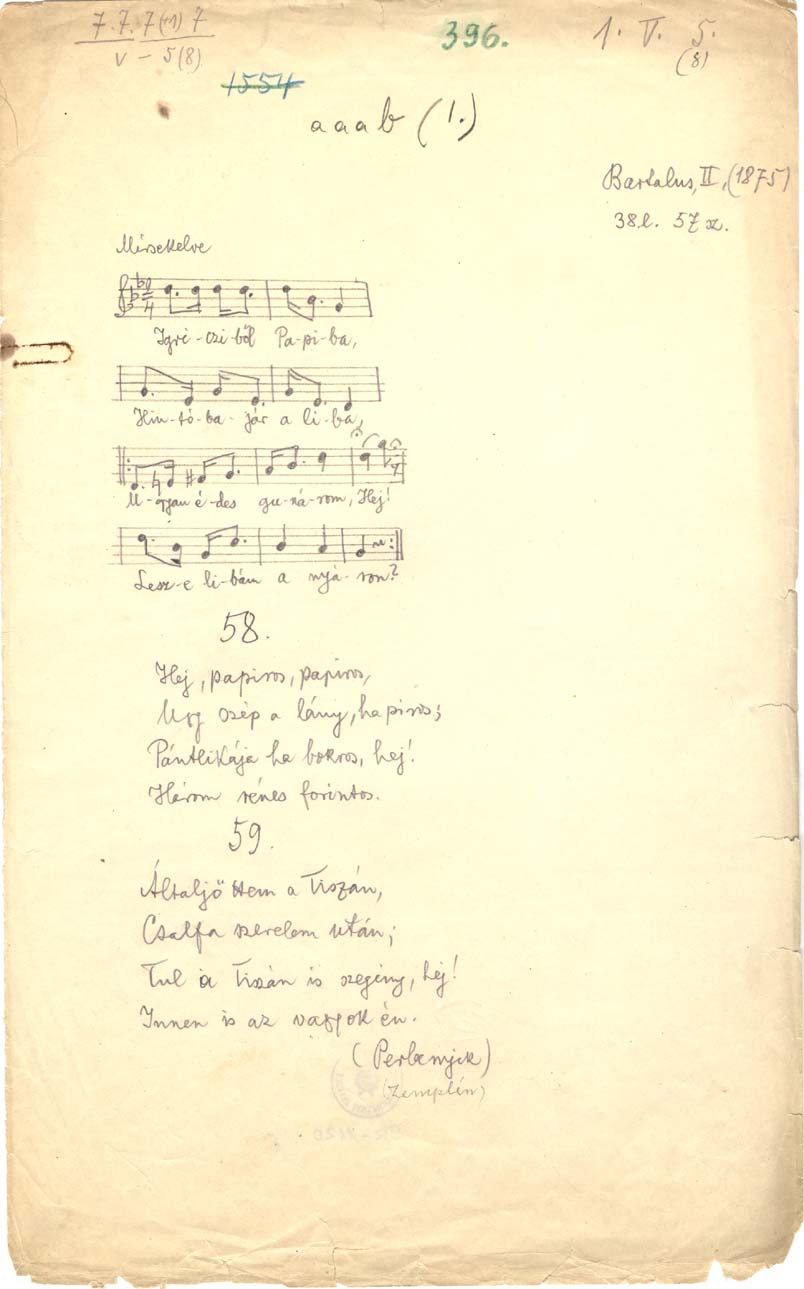 7. 7. 7(+1) 7
V – 5(8)
396.
1. V. 5.
(8)
1554
a a a b (1.)
Bartalus, II, (1875)
38.l. 57 sz.
Mérsékelve
2/4
Igri-czi-ből Pa-pi-ba,
Hin-tó-ba-jár a li-ba,
U-gyan é-des gu-ná-rom, Hej!
Lesz-e li-bám a nyá-ron?
58.
Hej, papiros, papiros,
Ugy szép a lány, ha piros;
Pántlikája ha bokros, hej!
Három rénes forintos.
59.
Általjöttem a Tiszán,
Csalfa szerelem után;
Tul a Tiszán is szegény, hej!
Innen is az vagyok én.
(Perbenyik)
(Zemplén)